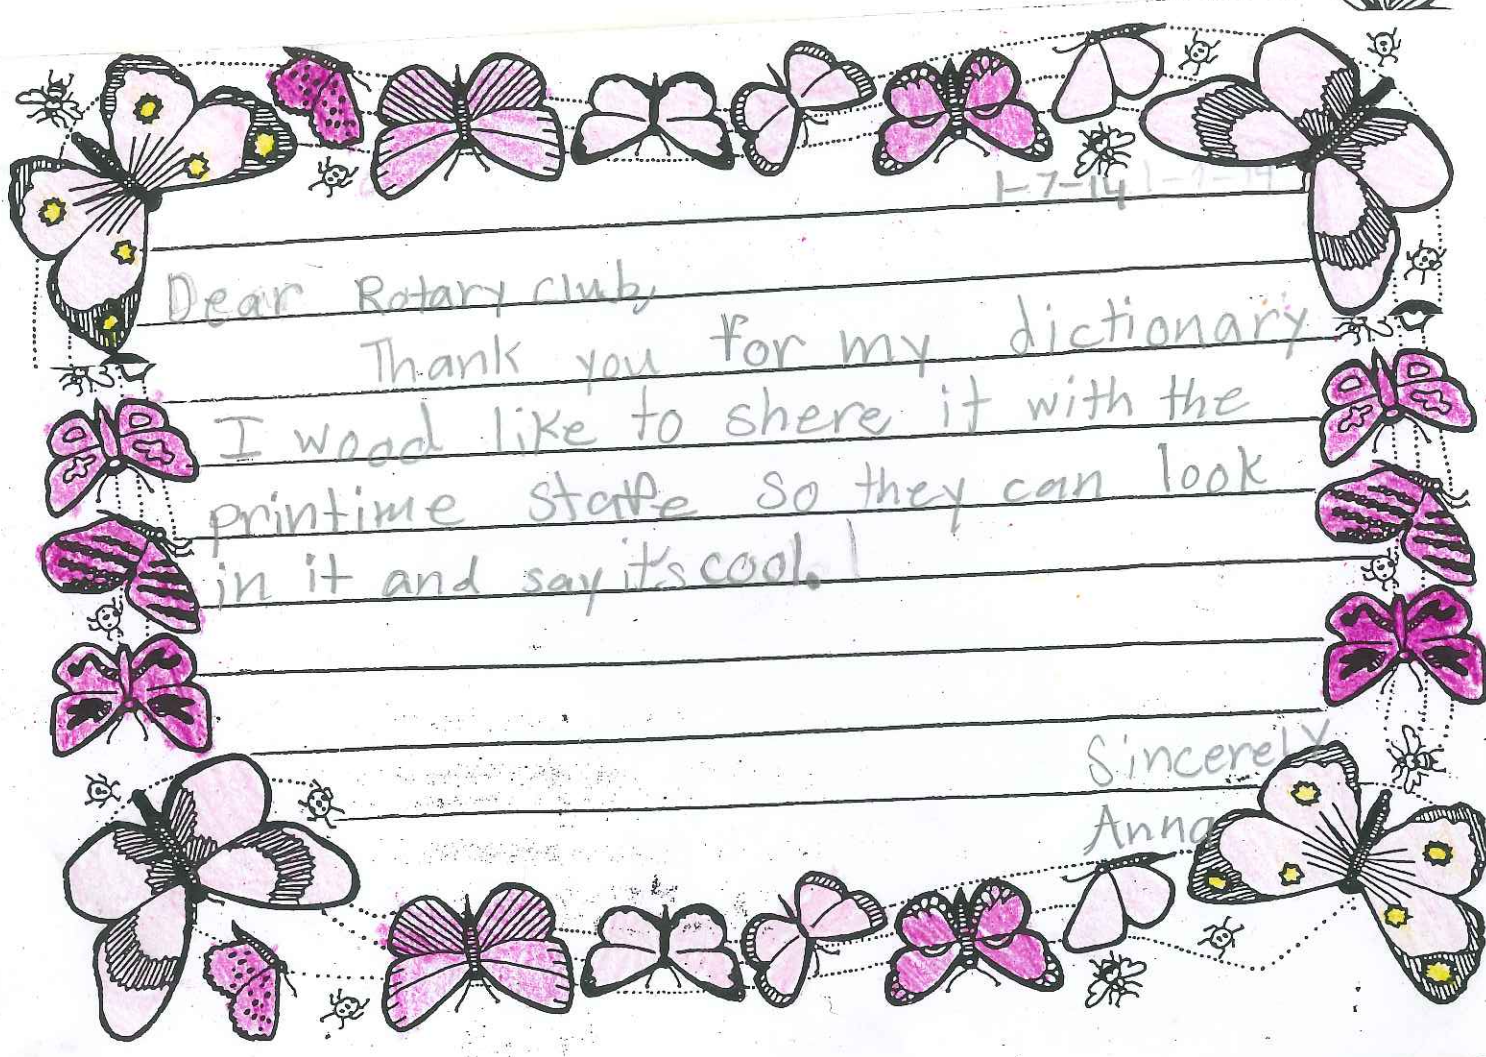 1-7-14 1-7-14
Dear Rotary club,
Thank you for my dictionary
I wood like to shere it with the
printime stafe so they can look
in it and say it's cool.
Sincerely
Anna